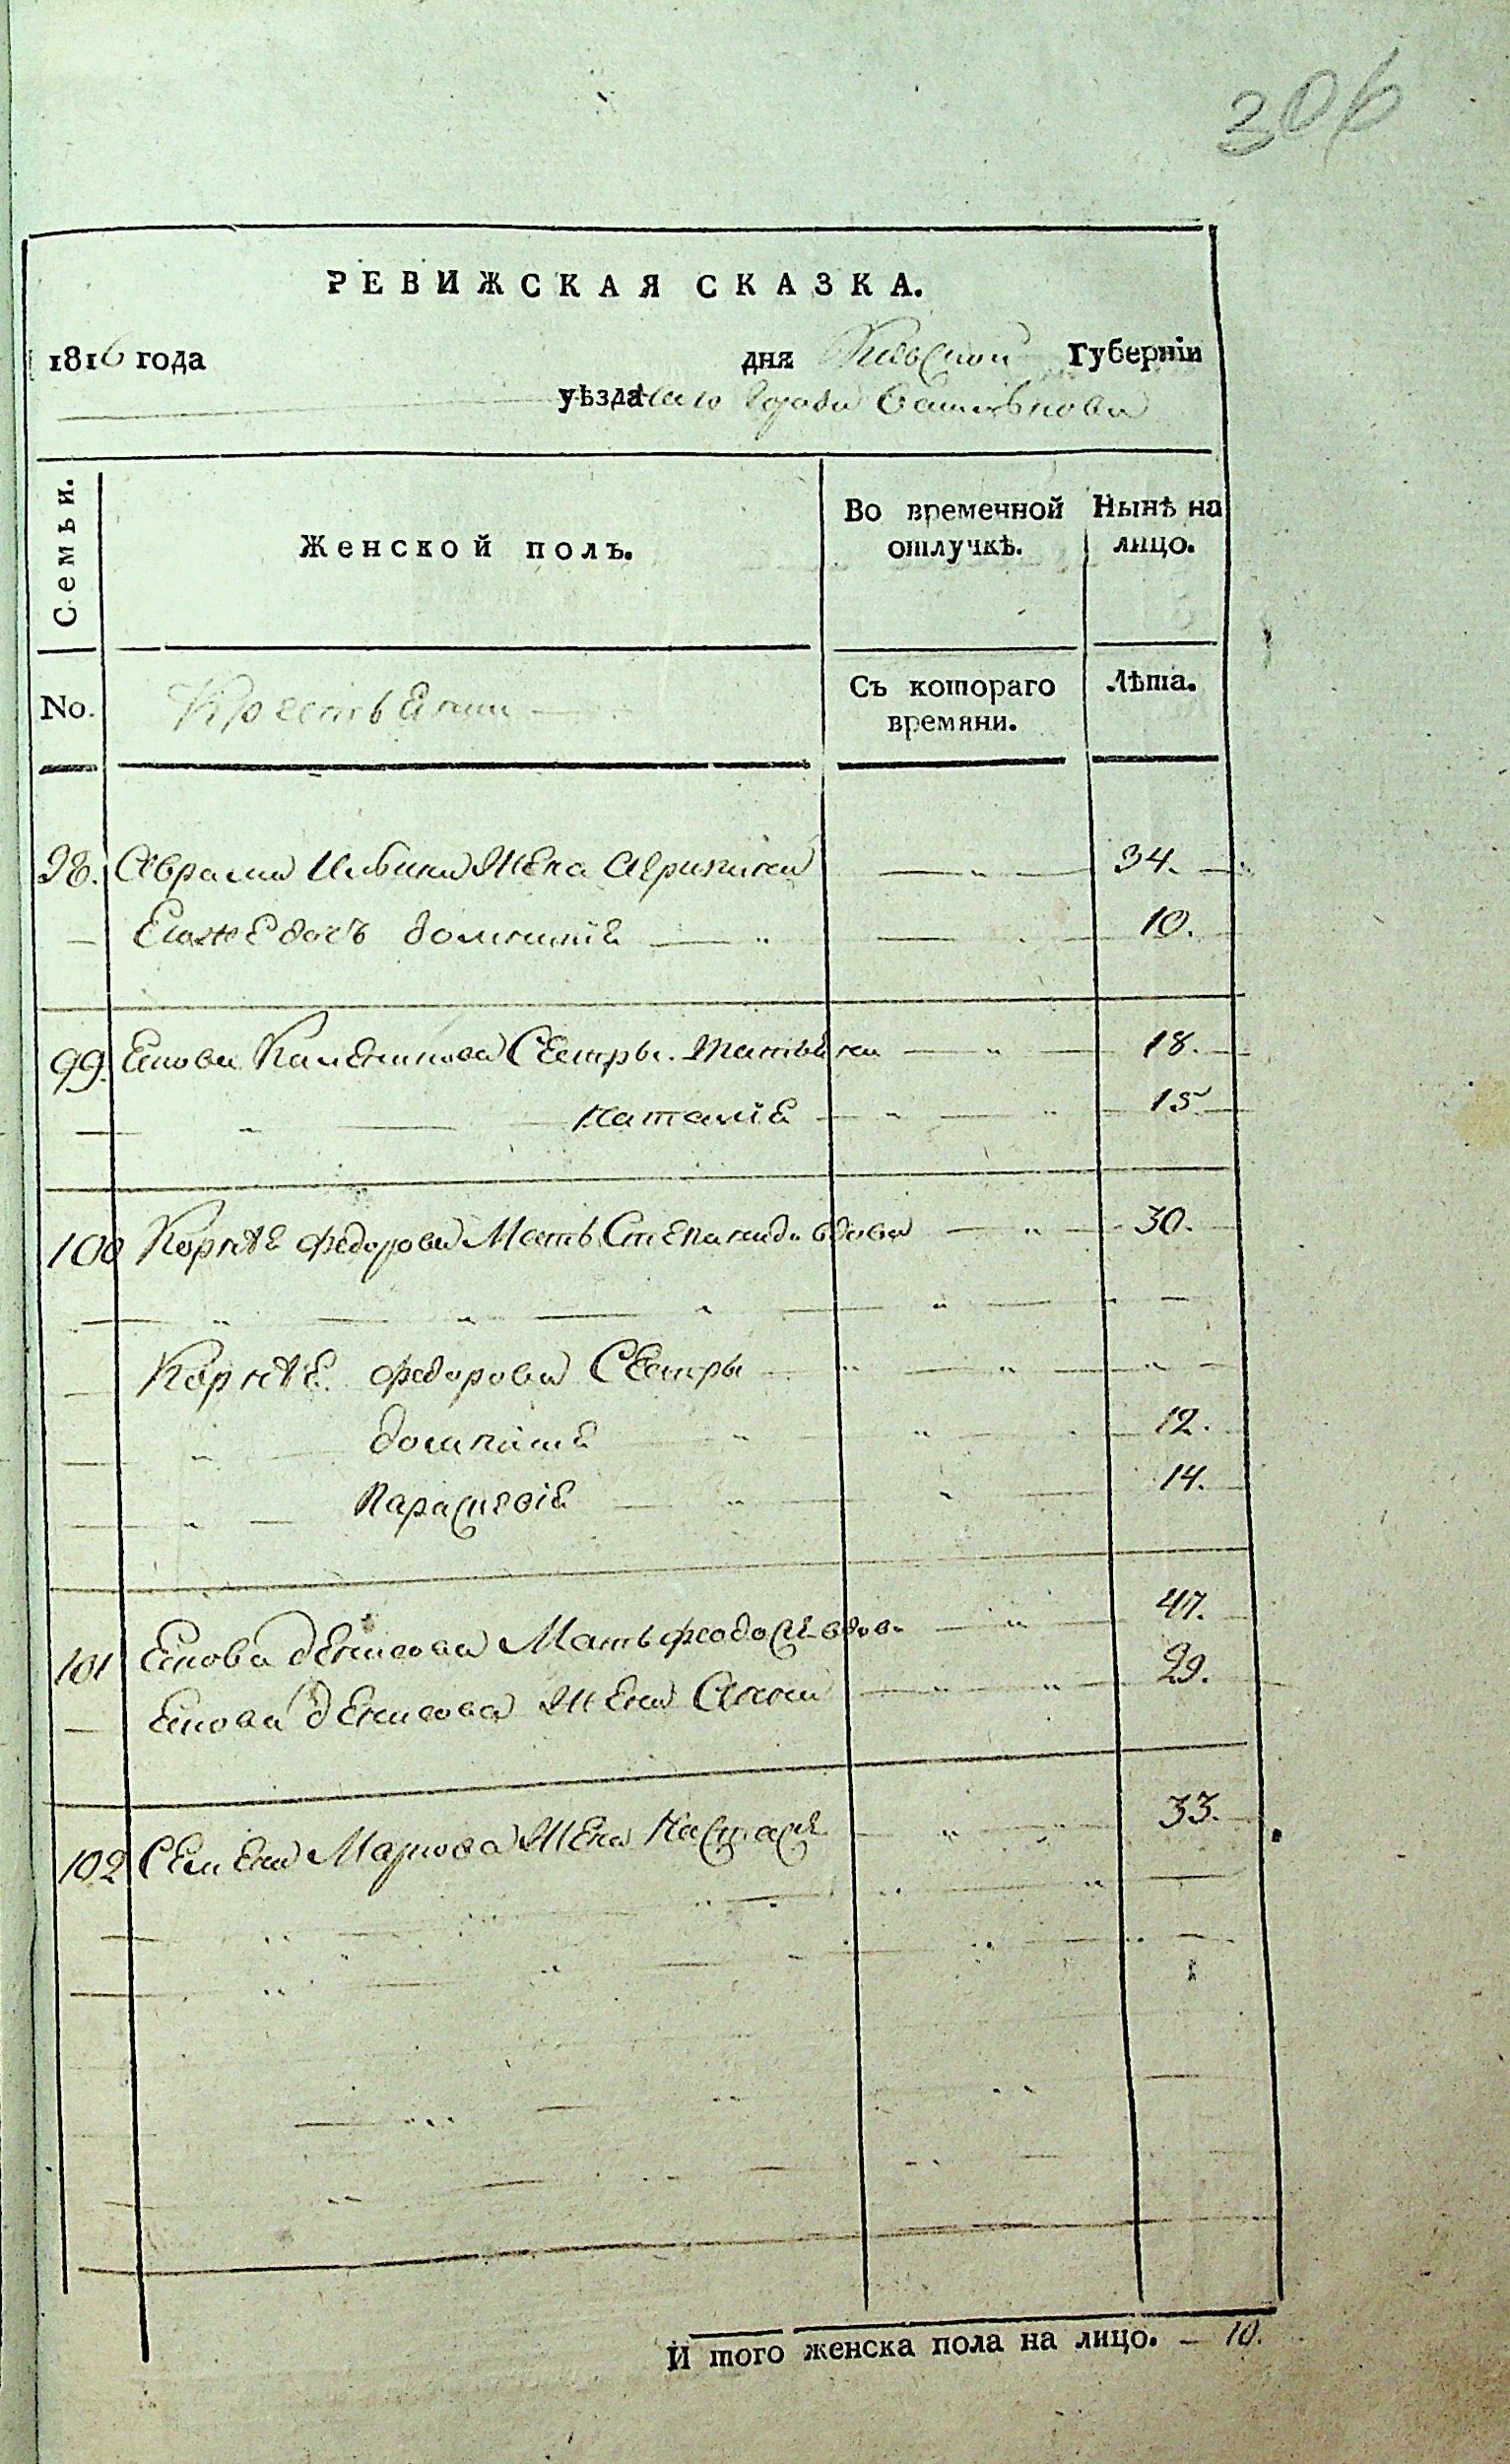 306
РЕВИЖСКАЯ СКАЗКА.
1816 года дня Киевской Губерніи
уѣзда города
Семьи. Женской полъ. Во временной отлучкѣ. Нынѣ на лицо.
No. Крестьяни Съ котораго времяни. Лѣта.
98. Аврама Ильина Жена Агрипина 34.
Еиоже дочь домникія 10.
99. Якова Сестры. Татьяна 18.
Наталія 15
100 Корнѣя федорова Мать Степанида вдова 30.
Корнѣя федорова Сестры
домникія 12.
Параскевія 14.
101 Якова денисова Мать феодосія вдова 47.
Якова денисова Жена Анна 29.
102 Семена Маркова Жена Настася 33.
И того женска пола на лицо. — 10.